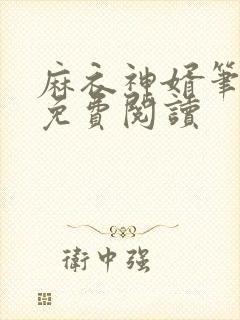 麻衣神婿筆
免費閱讀
衛中强